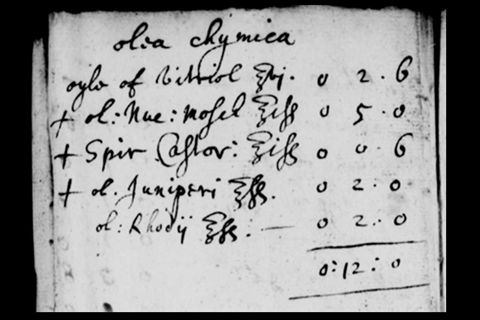 olea chymica
oyle of Vitriol ℥vj. 0 2 . 6
+ ol: Nuc: Mosch ℥iss 0 5 . 0
+ Spir Castor: ℥iss 0 0 . 6
+ ol. Juniperi ℥ss. 0 2 . 0
ol: Rhodij ℥ss. — 0 2 . 0
0 : 12 : 0